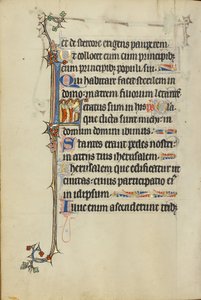 et de stercore erigens pauperem
Ut collocet eum cum principib;
cum principib; populi sui
Qui habitare facit sterilem in
domo: matrem filiorum letantē
Letatus sum in his
que dicta sunt michi: in
domum domini ibimus
Stantes erant pedes nostri:
in atriis tuis iherusalem
Iherusalem que edificatur ut
ciuitas: cuius participatio ei'
in idipsum
Illuc enim ascenderunt trib;